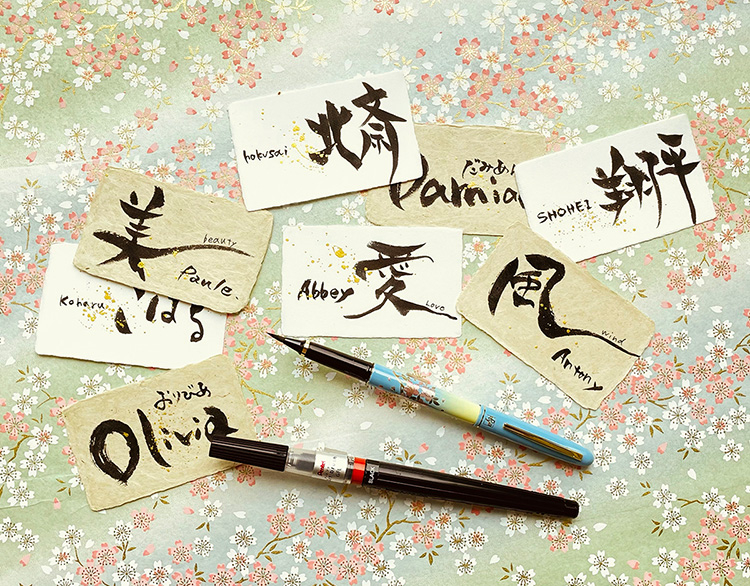 hokusai
北斎
だみあん
Damia
SHOHEI
翔平
美
beauty
Paule.
Koharu
はる
Abbey
愛
Love
風
wind
Antony
おりびあ
Olivia
BLACK